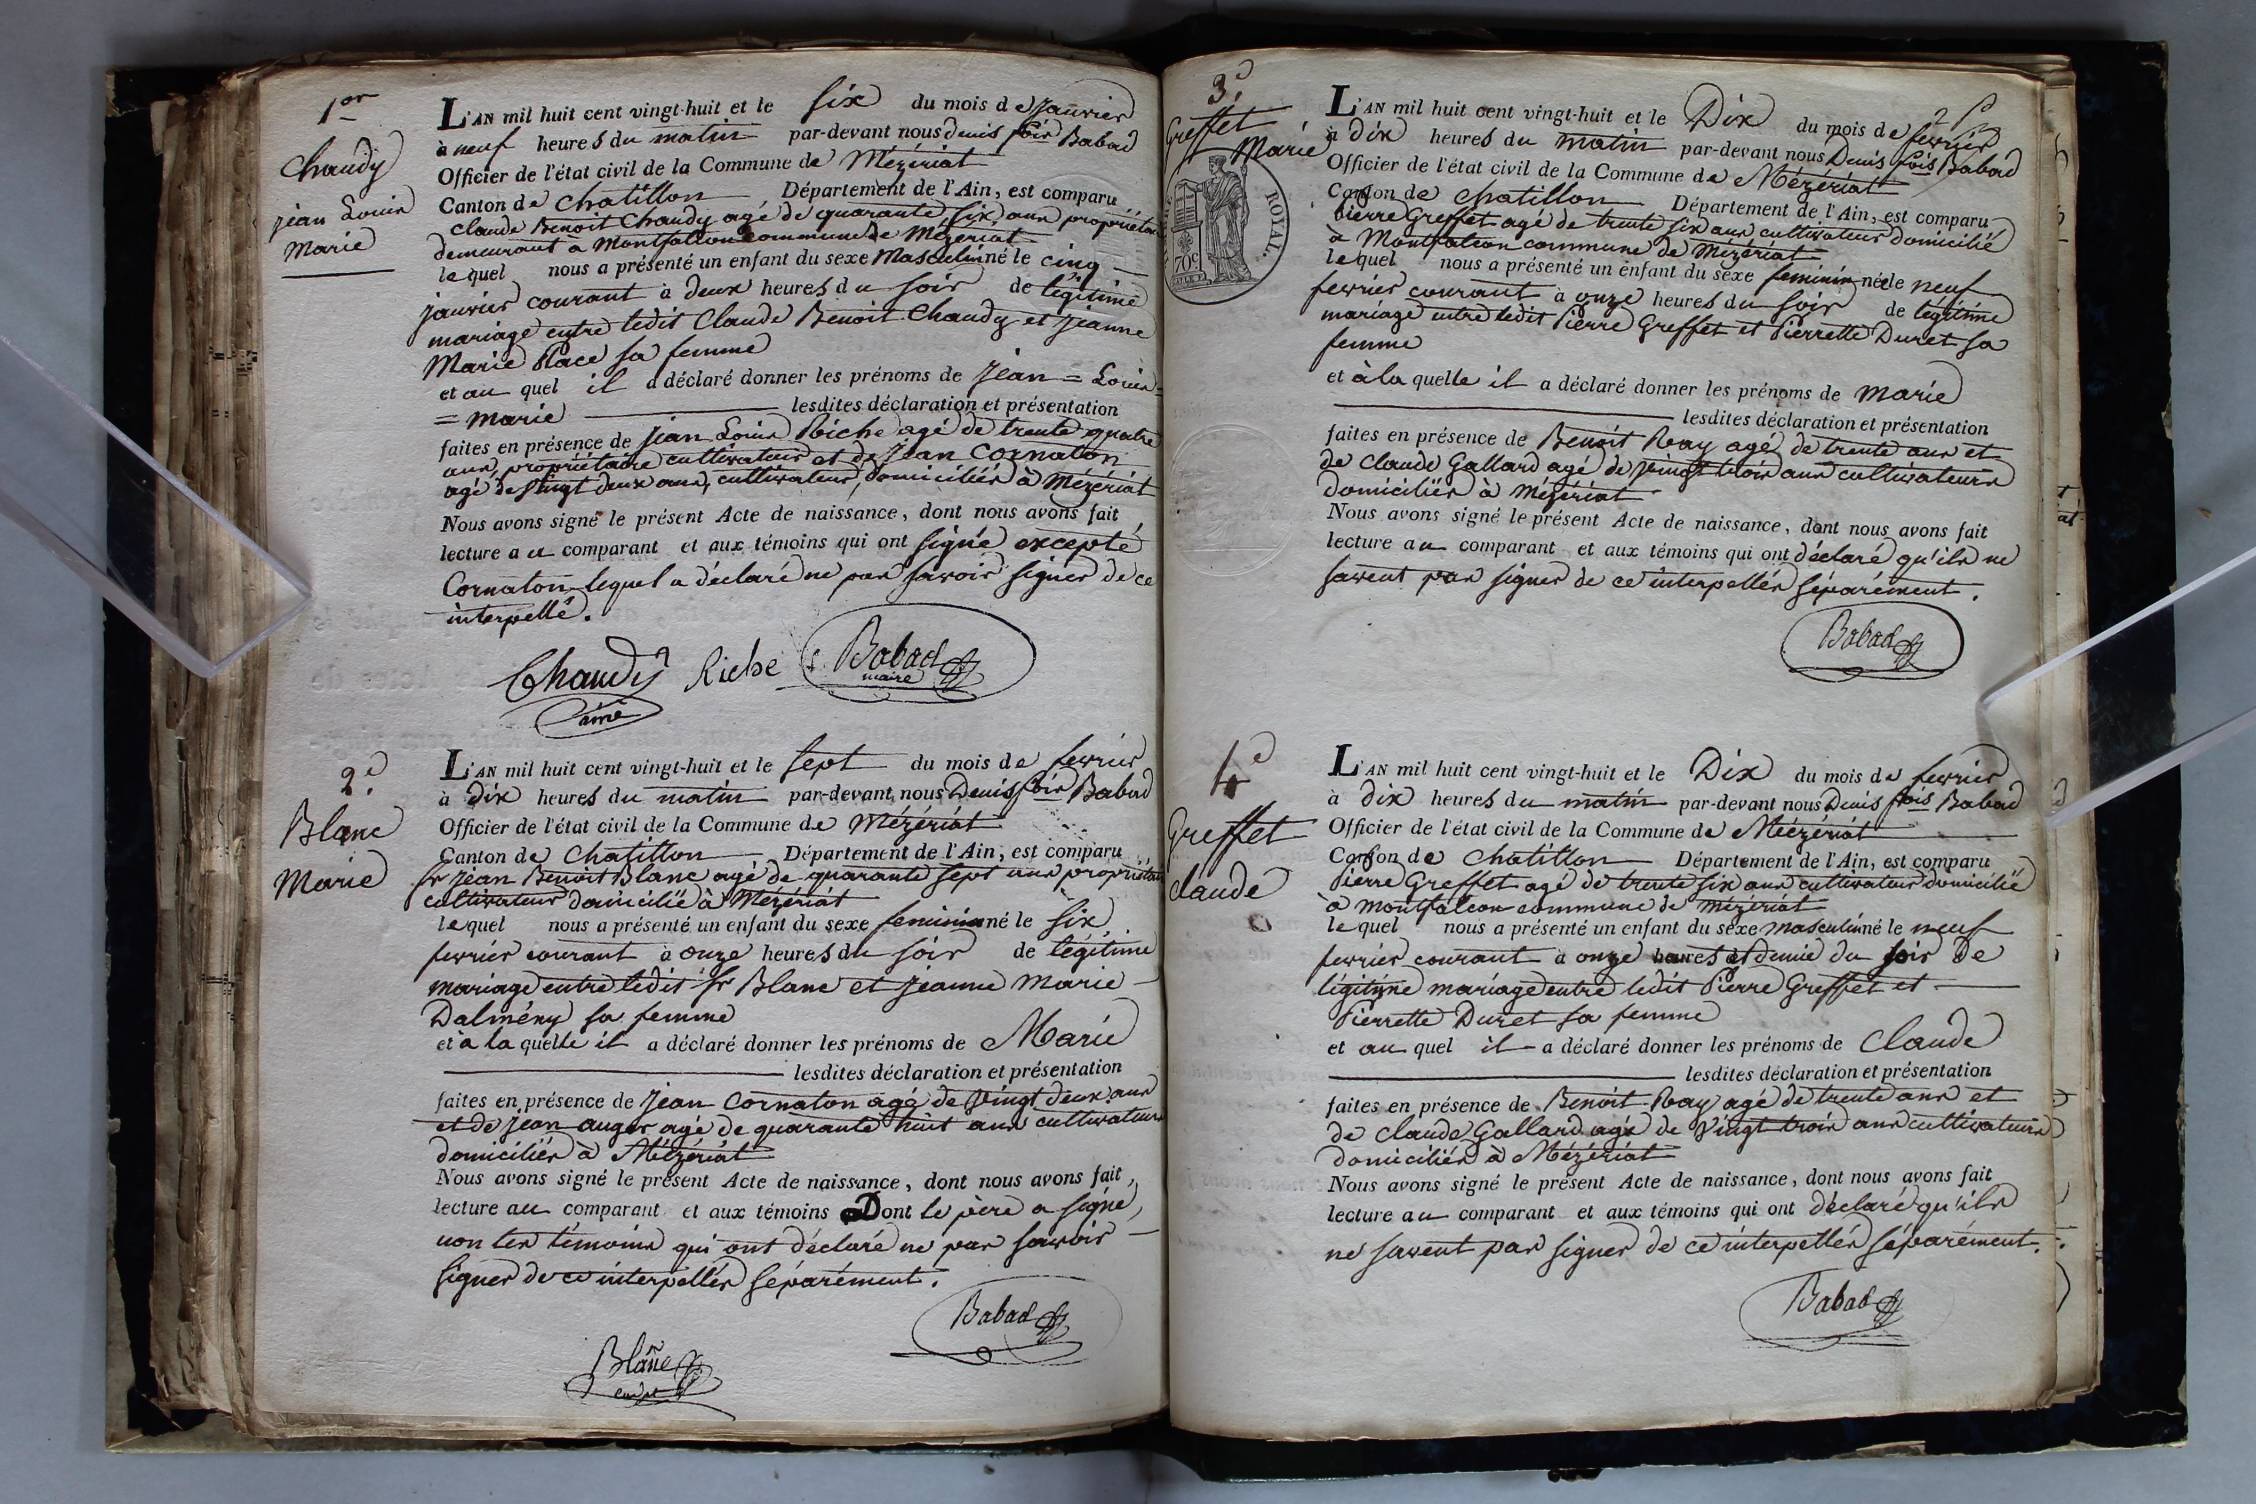 1er
Chaudy
jean Louis
Marie
L'AN mil huit cent vingt-huit et le six du mois de janvier
à neuf heures du matin par-devant nous denis fois Babad
Officier de l'état civil de la Commune de Mézériat
Canton de Chatillon Département de l'Ain, est comparu
Claude Benoit Chaudy agé de quarante six ans propriétaire
demeurant à Montfalcon commune de Mézériat
lequel nous a présenté un enfant du sexe Masculin né le cinq
janvier courant à deux heures du soir de légitime
mariage entre ledit Claude Benoit Chaudy et jeanne
Marie Place sa femme
et au quel il a déclaré donner les prénoms de jean = Louis =
= Marie lesdites déclaration et présentation
faites en présence de jean Louis Riche agé de trente quatre
ans, propriétaire cultivateur et de jean Cornaton
agé de vingt deux ans, cultivateur, domiciliés à Mézériat
Nous avons signé le présent Acte de naissance, dont nous avons fait
lecture au comparant et aux témoins qui ont signé excepté
Cornaton lequel a déclaré ne pas savoir signer de ce
interpellé.
Chaudy Riche Babad
maire
ainé
2e.
Blanc
Marie
L'AN mil huit cent vingt-huit et le sept du mois de fevrier
à dix heures du matin par-devant nous Denis fois Babad
Officier de l'état civil de la Commune de Mézériat
Canton de Chatillon Département de l'Ain, est comparu
Sr jean Benoit Blanc agé de quarante sept ans propriétaire
cultivateur domicilié à Mézériat
lequel nous a présenté un enfant du sexe feminin né le six
fevrier courant à onze heures du soir de légitime
mariage entre ledit Sr Blanc et jeanne Marie
Dalmény sa femme
et à la quelle il a déclaré donner les prénoms de Marie
lesdites déclaration et présentation
faites en présence de jean Cornaton agé de vingt deux ans
et de jean auger agé de quarante huit ans cultivateurs
domiciliés à Mézériat
Nous avons signé le présent Acte de naissance, dont nous avons fait
lecture au comparant et aux témoins Dont le père a signé,
non les témoins qui ont déclaré ne pas savoir
signer de ce interpellés séparément.
Babad
Blanc
cadet
3e.
Greffet
Marie
ROYAL.
70c
2 f
L'AN mil huit cent vingt-huit et le Dix du mois de fevrier
à dix heures du matin par-devant nous Denis fois Babad
Officier de l'état civil de la Commune de Mézériat
Canton de Chatillon Département de l'Ain, est comparu
Pierre Greffet agé de trente six ans cultivateur domicilié
à Montfalcon commune de Mézériat
lequel nous a présenté un enfant du sexe feminin née le neuf
fevrier courant à onze heures du soir de légitime
mariage entre ledit Pierre Greffet et Pierrette Duret sa
femme
et à la quelle il a déclaré donner les prénoms de Marie
lesdites déclaration et présentation
faites en présence de Benoit Ray agé de trente ans et
de Claude Gallard agé de vingt trois ans cultivateurs
domiciliés à Mézériat
Nous avons signé le présent Acte de naissance, dont nous avons fait
lecture au comparant et aux témoins qui ont déclaré qu'ils ne
savent pas signer de ce interpellés séparément.
Babad
4e
Greffet
Claude
L'AN mil huit cent vingt-huit et le Dix du mois de fevrier
à dix heures du matin par-devant nous Denis fois Babad
Officier de l'état civil de la Commune de Méézériat
Canton de Chatillon Département de l'Ain, est comparu
Pierre Greffet agé de trente six ans cultivateur domicilié
à Montfalcon commune de Mézériat
lequel nous a présenté un enfant du sexe masculin né le neuf
fevrier courant à onze heures et demie du soir de
légitime mariage entre ledit Pierre Greffet et
Pierrette Duret sa femme
et au quel il a déclaré donner les prénoms de Claude
lesdites déclaration et présentation
faites en présence de Benoit Ray agé de trente ans et
de Claude Gallard agé de vingt trois ans cultivateurs
domiciliés à Mézériat
Nous avons signé le présent Acte de naissance, dont nous avons fait
lecture au comparant et aux témoins qui ont déclaré qu'ils
ne savent pas signer de ce interpellés séparément.
Babad